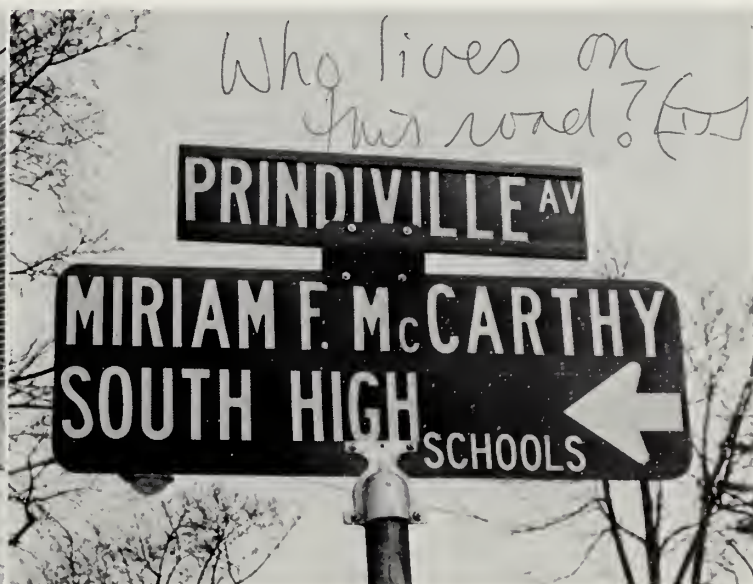 Who lives on
this road?
PRINDIVILLE AV
MIRIAM F. McCARTHY
SOUTH HIGH
SCHOOLS